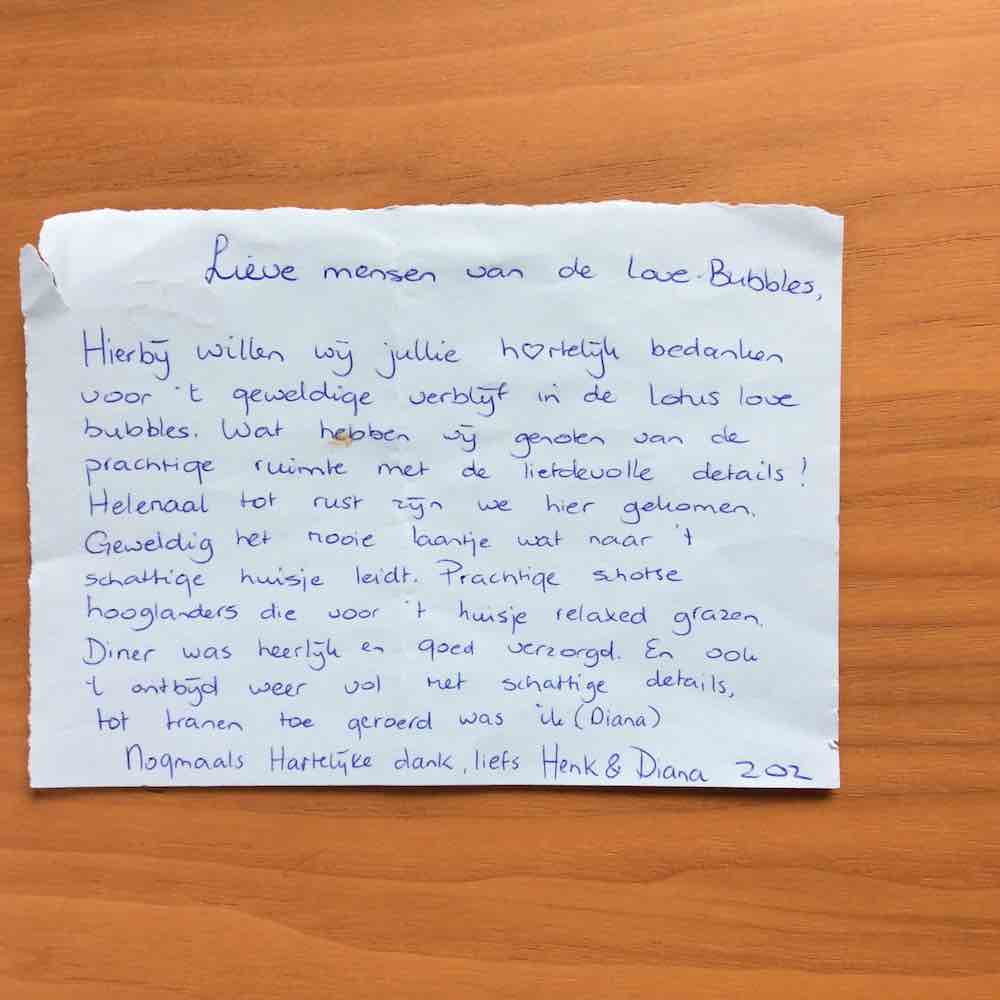 Lieve mensen van de Love-Bubbles,
Hierbij willen wij jullie h♡rtelijk bedanken
voor 't geweldige verblijf in de Lotus love
bubbles. Wat hebben wij genoten van de
prachtige ruimte met de liefdevolle details!
Helemaal tot rust zijn we hier gekomen.
Geweldig het mooie laantje wat naar 't
schattige huisje leidt. Prachtige schotse
hooglanders die voor 't huisje relaxed grazen.
Diner was heerlijk en goed verzorgd. En ook
't ontbijd weer vol met schattige details,
tot tranen toe geroerd was ik (Diana)
Nogmaals Hartelijke dank, liefs Henk & Diana 202